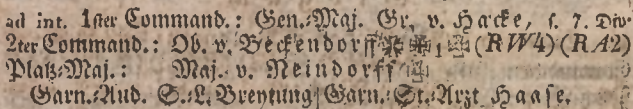 ad int. 1ster Command.: Gen.-Maj. Gr. v. Hacke, s. 7. Div
2ter Command.: Ob. v. Beckendorff 1 (RW4)(RA2)
Platz-Maj.: Maj. v. Reindorff
Garn.-Aud. S.-L. Breytung Garn.-St.-Arzt Haase.